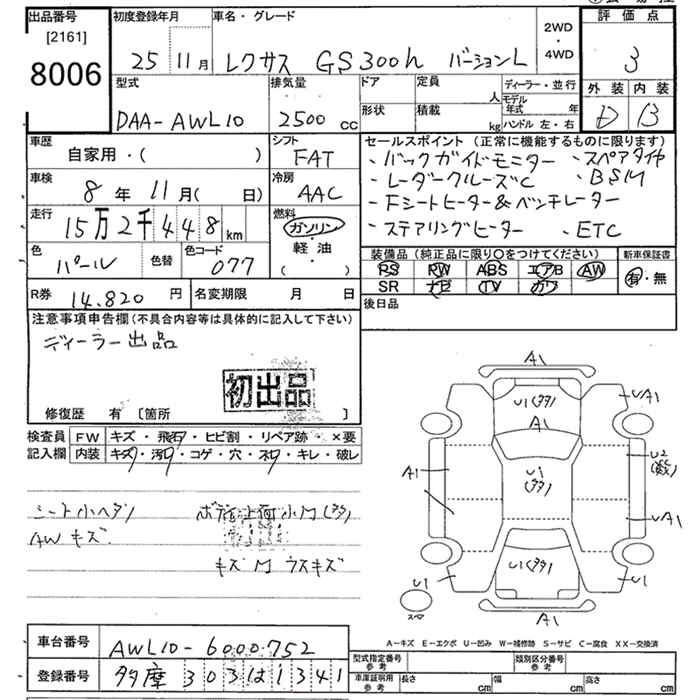 出品番号 初度登録年月 車名・グレード 2WD・4WD 評価点
[2161]
8006 25 11月 レクサス GS300h バージョンL 3
型式 排気量 ドア 定員 人 ディーラー・並行 外装 内装
DAA-AWL10 2500 CC 形状 積載 kg モデル年式 年 ハンドル 左・右 D B
車歴 自家用・( ) シフト FAT セールスポイント(正常に機能するものに限ります)
・バックガイドモニター ・スペアタイヤ
車検 8年11月( 日) 冷房 AAC ・レーダークルーズC ・BSM
・Fシートヒーター&ベンチレーター
走行 15万2千448km 燃料 ガソリン・軽油( ) ・ステアリングヒーター ・ETC
色 パール 色替 色コード 077 装備品(純正品に限り○をつけてください) 新車保証書
PS PW ABS エアB AW 有・無
SR ナビ TV カワ
R券 14,820円 名変期限 月 日 後日品
注意事項申告欄(不具合内容等は具体的に記入して下さい)
ディーラー出品
初出品
修復歴 有 [箇所 ]
検査員記入欄 FW キズ・飛石・ヒビ割・リペア跡・×要
内装 キズ・汚レ・コゲ・穴・ネジ・キレ・破レ
シート小ヘタリ
AWキズ
キズM ウスキズ
A1
U1(多)
UA1
A1
A1
U1(多)
U2
UA1
U1(多)
U1
U1
スペア
A1
A-キズ E-エクボ U-凹み W-補修跡 S-サビ C-腐食 XX-交換済
車台番号 AWL10-6000752
登録番号 多摩 303は1341
型式指定番号 参考 類別区分番号 参考
車庫証明用 参考 長さ cm 幅 cm 高さ cm